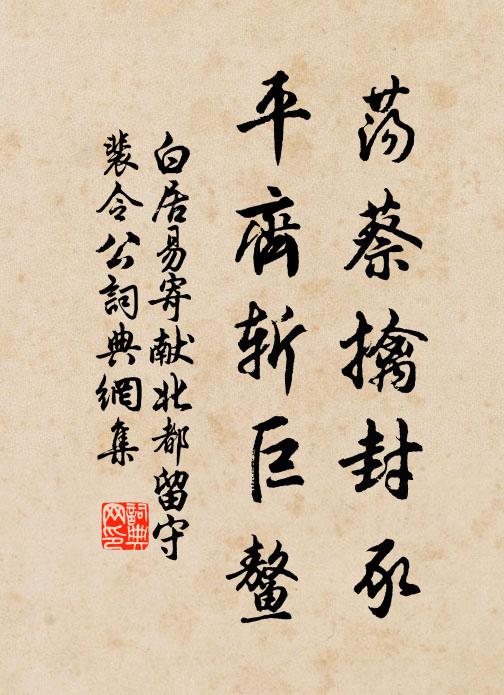 荡蔡擒封豕
平齊斩巨鳌
白居易寄献北都留守
裴令公詞典網集
詞典网印